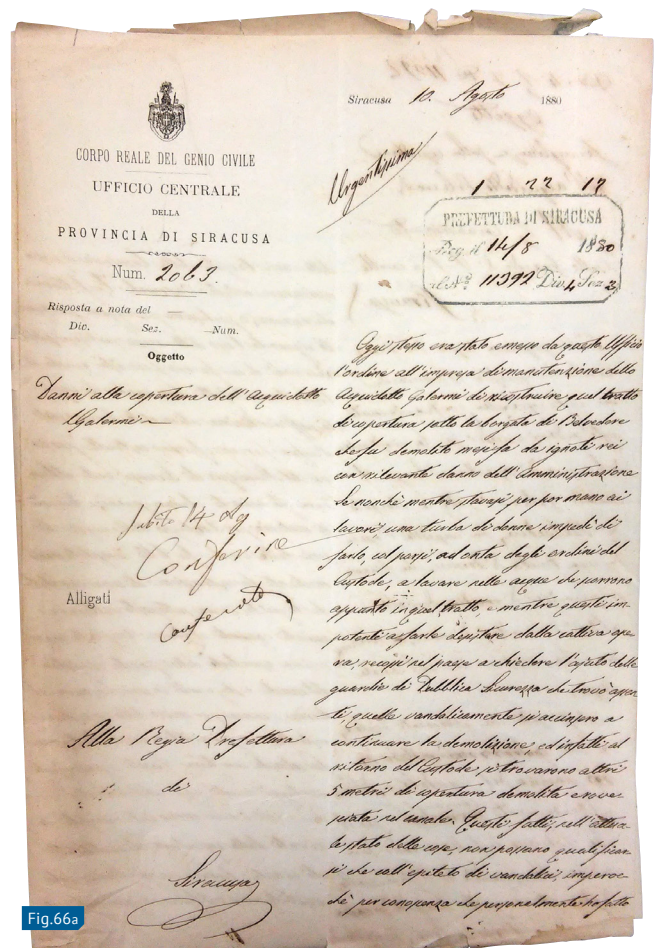 Siracusa 10. Agosto 1880
CORPO REALE DEL GENIO CIVILE
UFFICIO CENTRALE
DELLA
PROVINCIA DI SIRACUSA
Num. 2063.
Risposta a nota del
Dic. Sez. Num.
Oggetto
Danni alla copertura dell'Acquidotto
Galermi
Urgentissima
1 22 17
PREFETTURA DI SIRACUSA
Preg. il 14/8 1880
al N.º 11392 Div. 4 Sez 2
Subito 14 Ag
Conferire
Conferito
Alligati
Alla Regia Prefettura
di
Siracusa
Oggi stesso era stato emesso da questo Ufficio
l'ordine all'impresa di manutenzione dello
Acquidotto Galermi di ricostruire quel tratto
di copertura sotto la borgata di Belvedere
che fu demolito mesi fa da ignoti rei
con rilevante danno dell'Amministrazione
Se nonchè mentre stavasi per por mano ai
lavori, una turba di donne impedì di
farlo, col porsi, ad onta degli ordini del
Custode, a lavare nelle acque che scorrono
appunto in quel tratto, e mentre questi im-
potente a farle desistere dalla cattiva ope
ra, recossi nel paese a chiedere l'ajuto delle
guardie di Pubblica Sicurezza che trovò assen
ti quelle vandalicamente si accinsero a
continuare la demolizione, ed infatti al
ritorno del Custode si trovarono altri
5 metri di copertura demolita e rove-
sciata nel canale. Questi fatti, nell'attua
le stato delle cose, non possono qualificar
si che coll'epiteto di vandalici, imperoc
chè per conoscenza che personalmente ho fatto
Fig.66a